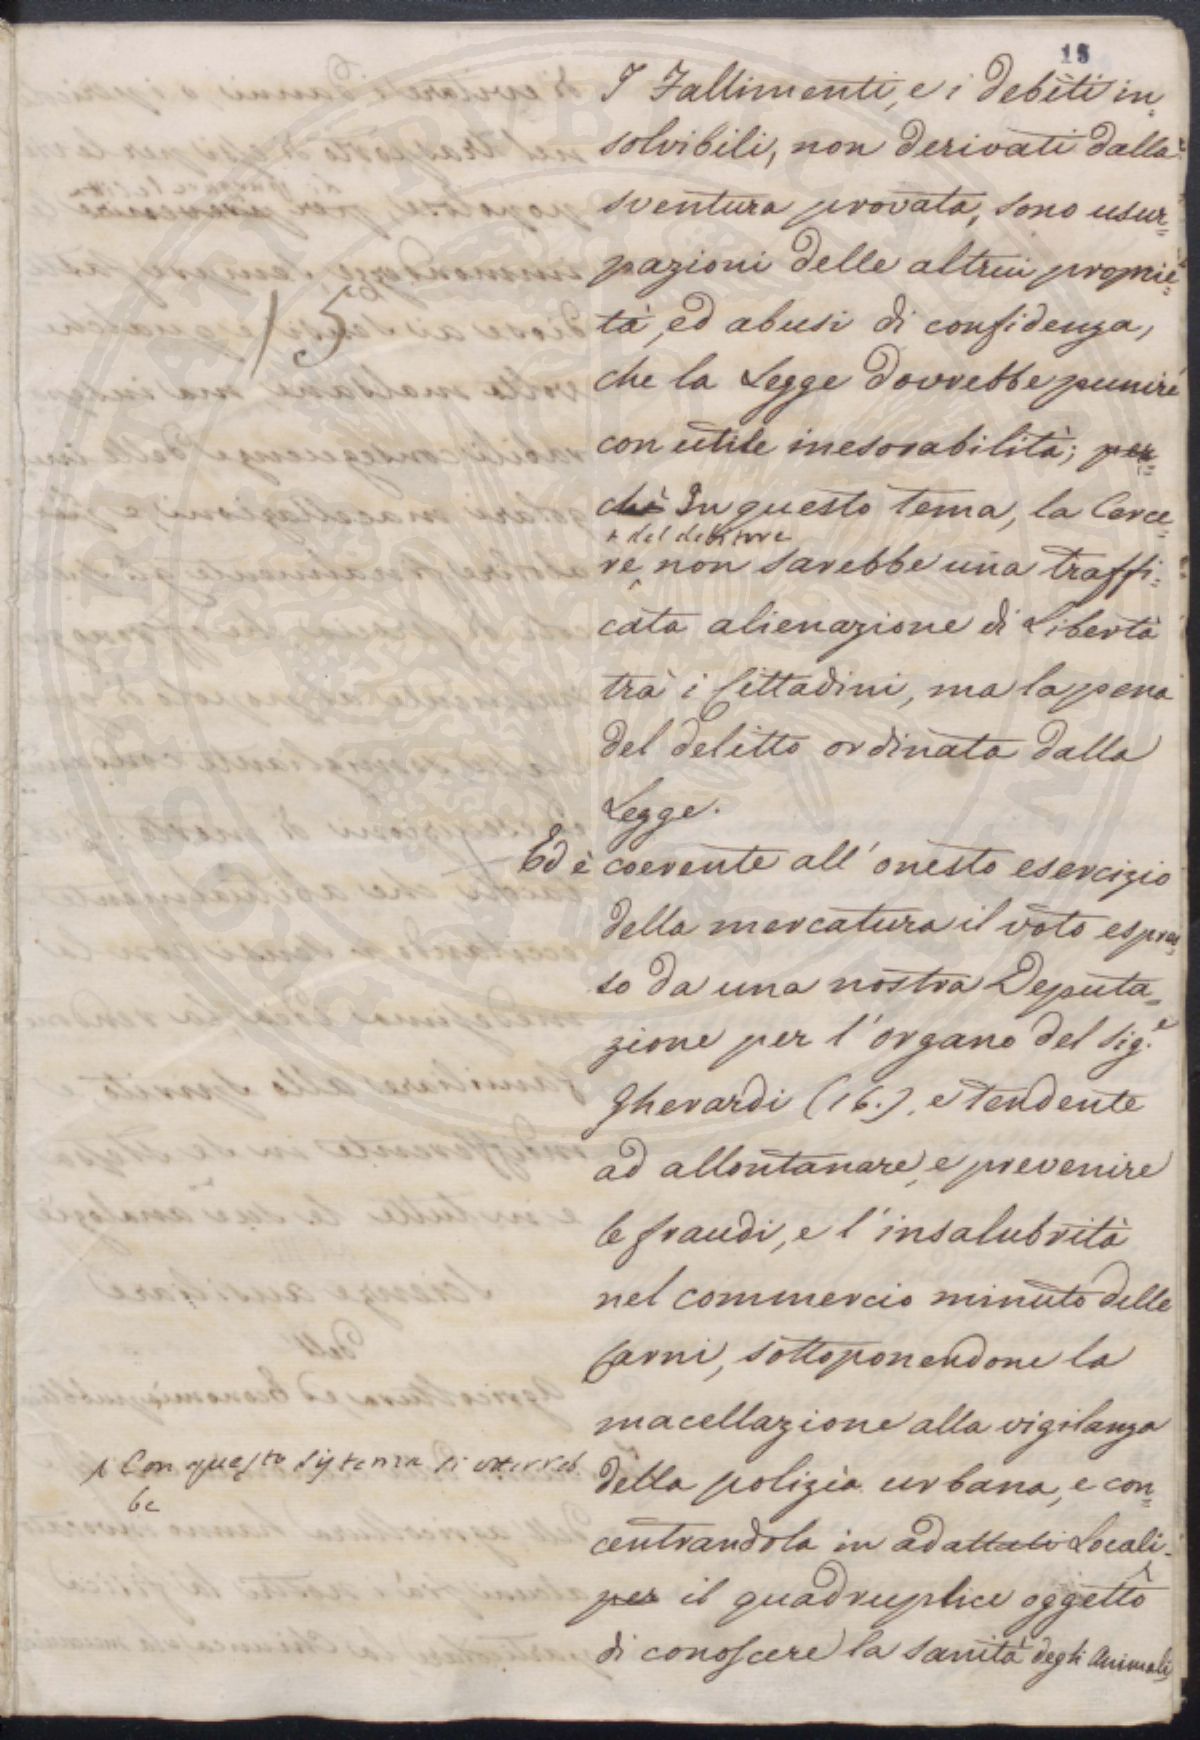 18
I Fallimenti, e i debiti in=
solvibili, non derivati dalla
sventura provata, sono usur=
pazioni delle altrui proprie=
tà, ed abusi di confidenza,
che la Legge dovrebbe punire
con utile inesorabilità; per=
chè In questo tema, la Carce=
del debitore
re non sarebbe una traffi=
cata alienazione di Libertà
trà i Cittadini, ma la pena
del delitto ordinata dalla
Legge.
Ed è coerente all' onesto esercizio
della mercatura il voto espres=
so da una nostra Deputa=
zione per l' organo del Sig.e
Gherardi (16.), e tendente
ad allontanare, e prevenire
le fraudi, e l' insalubrità
nel commercio minuto delle
Carni, sottoponendone la
macellazione alla vigilanza
della polizia urbana, e con=
centrandola in adattati Locali.
per il quadruplice oggetto
di conoscere la sanità degli Animali,
15
Con questo sistema si otterreb
be